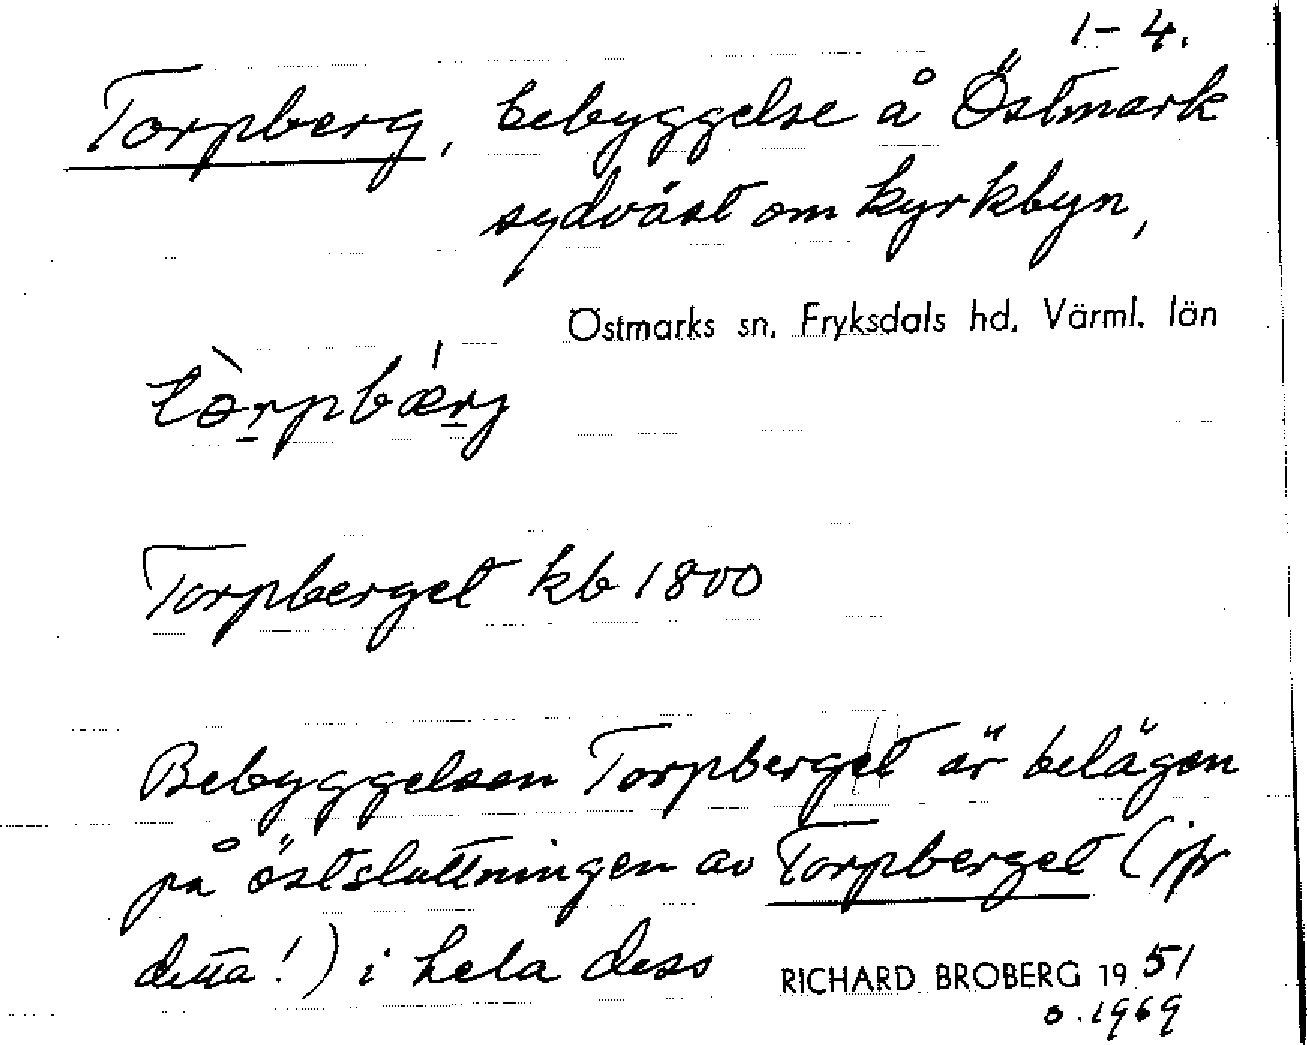 1-4.
Torpberg, bebyggelse å Östmark
sydväst om kyrkbyn,
Östmarks sn. Fryksdals hd. Värml. län
tòrpbǽrj
Torpberget kb 1800
Bebyggelsen Torpberget är belägen
på östsluttningen av Torpberget (jfr
detta!) i hela dess
RICHARD BROBERG 1951
o. 1969